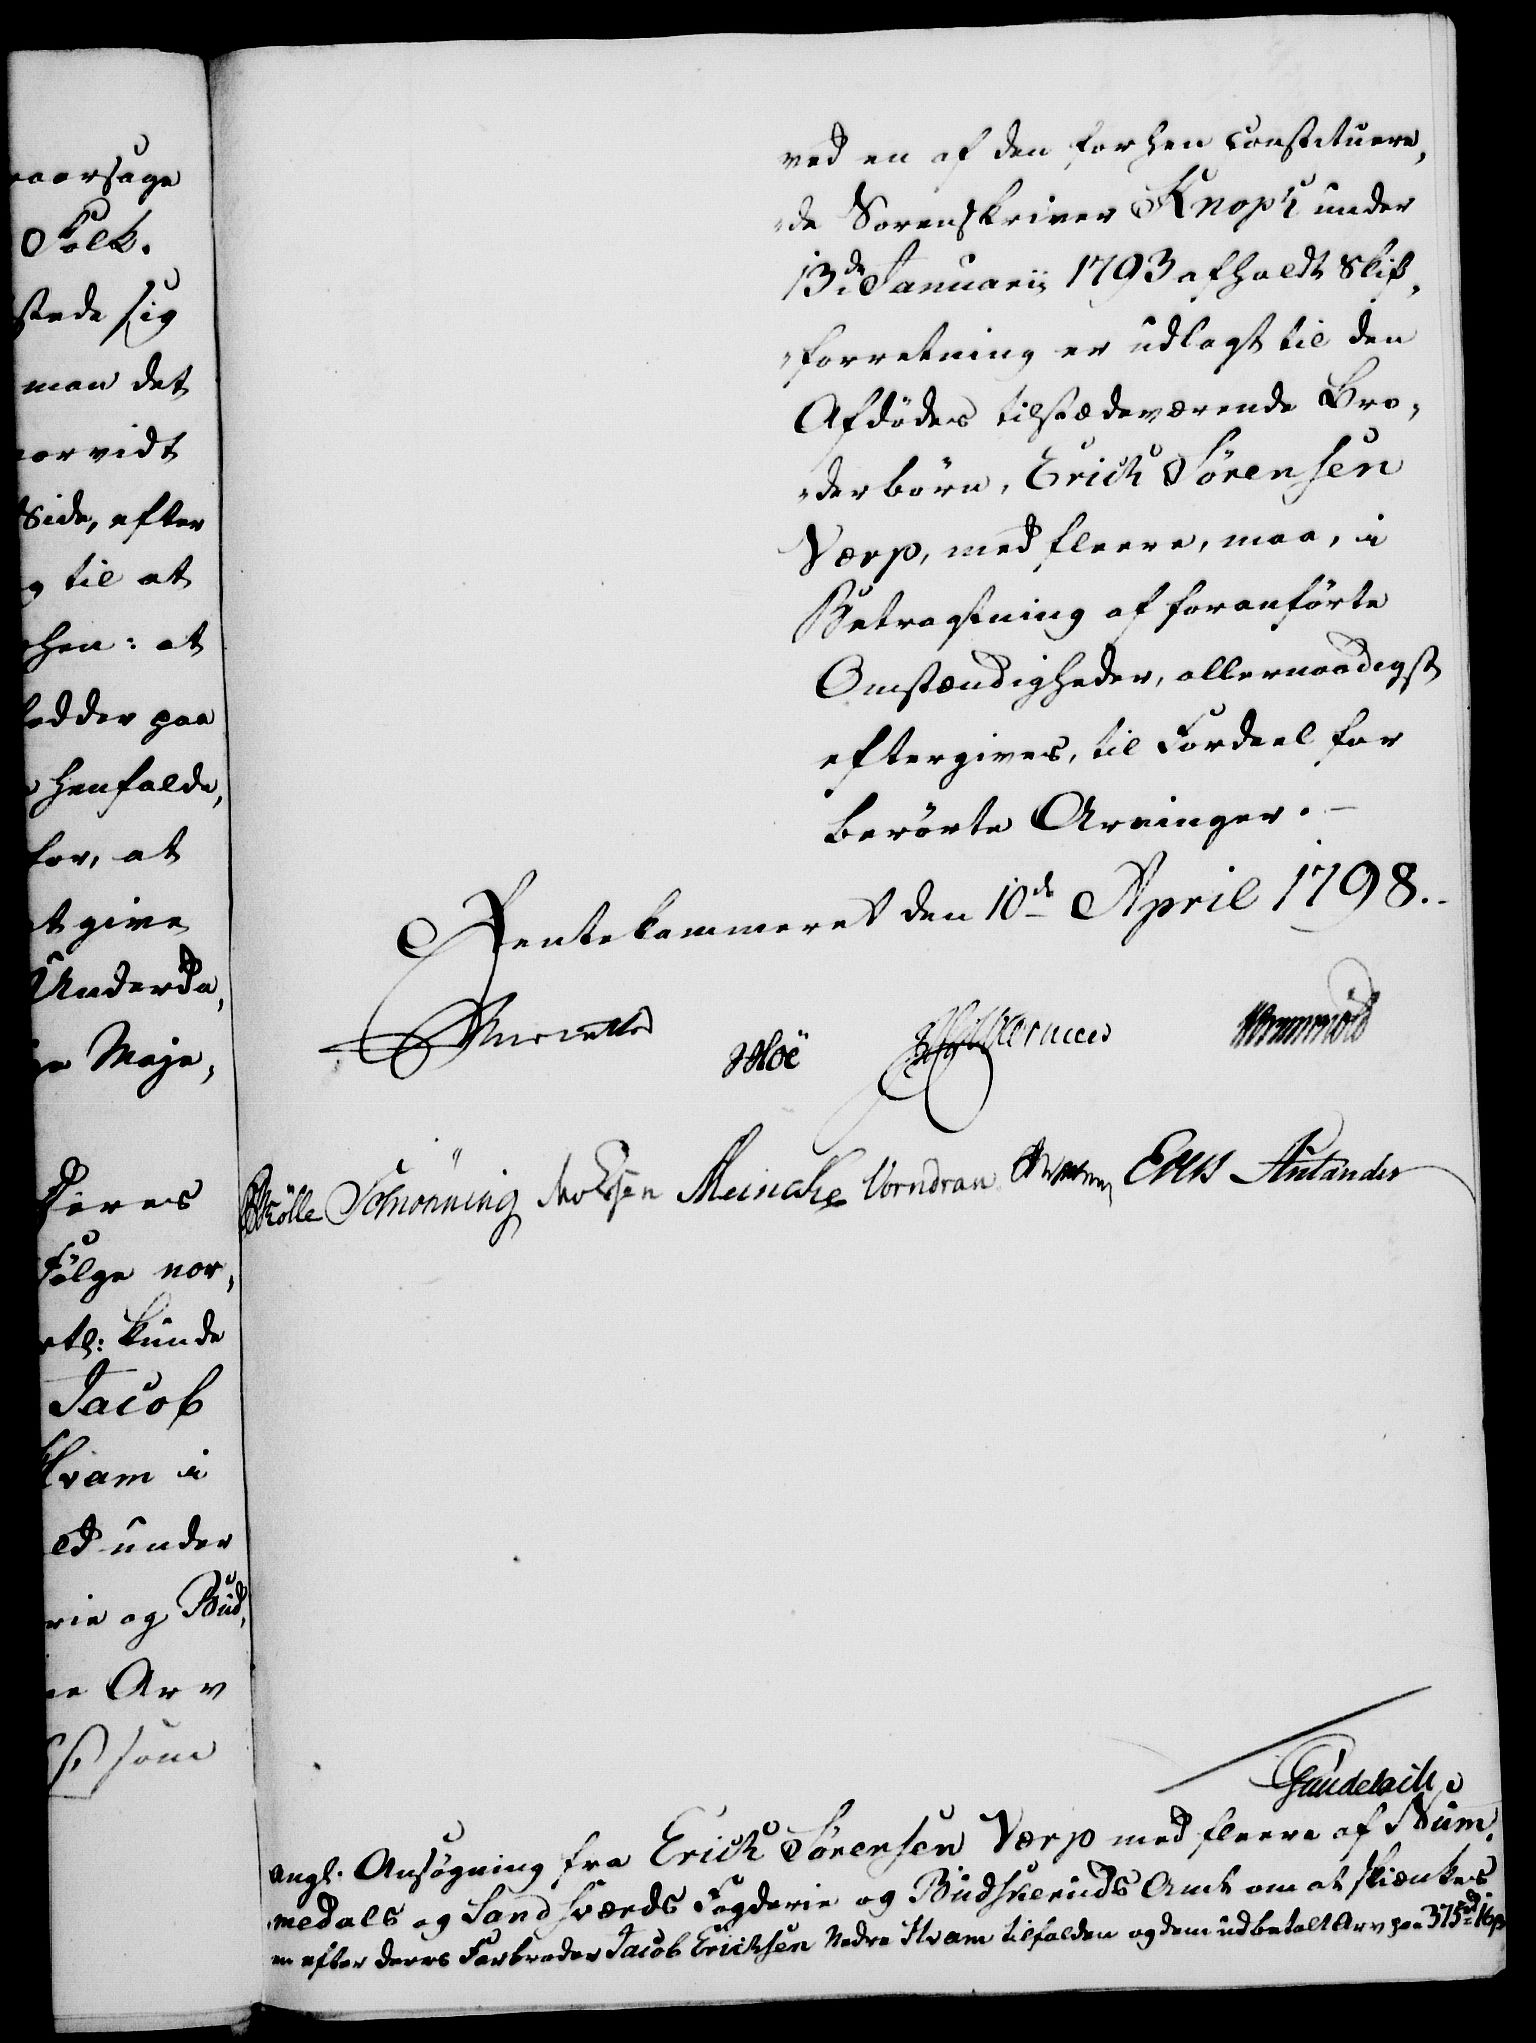 aarsage
Folk.
stede sig
man det
orvidt
Side, efter
g til at
hen: at
fædder paa
henfalde,
for, at
at give
Underda,
Maje,
Deres
Følge nor,
rtl: kunde
Jacob
Kvam i
ed under
rie og Bud,
Arv
som
ved en af den forhen constituere,
„de Sorenskriver Knoph under
13de Januarii 1793 afholdt Skif,
„forretning er udlagt til den
Afdødes tilstædeværende Bro,
„derbörn, Erich Sörensen
Værp, med fleere, maa, i
Betragtning af foranförte
Omstændigheder, allernaadigst
eftergives, til Fordeel for
berörte Arvinger.
Rentekammeret den 10de April 1798.
Moë
Wormskiold
Kölle Schönning Meincke Vorndran
Gaudelach
angl. Ansögning fra Erich Sörensen Værp med fleere af Num,
medals og Sandsværds Fogderie og Budskeruds Amt om at skiænkes
en efter deres Farbroder Jacob Erichsen Nedre Kvam tilfalden og dem udbetalt Arv paa 375 rd 16 ß